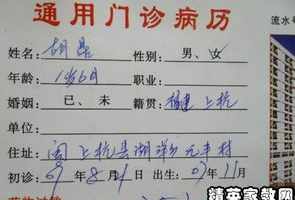 通用门诊病历
流水号
姓名: 胡 性别: 男、女
年龄: 1岁6月 职业:
婚姻: 已、未 籍贯: 福建上杭
单位:
住址: 闽上杭县湖洋乡元丰村
初诊: 09年8月1日 出生: 07年11月
精英家教网